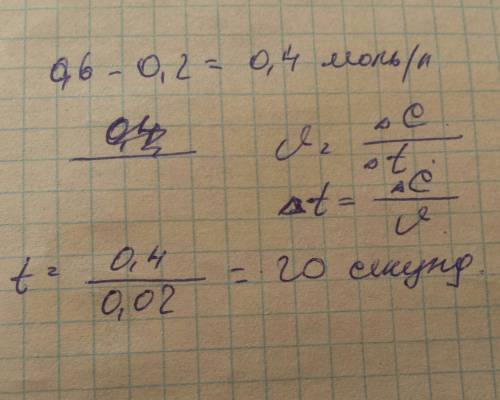 0,6 - 0,2 = 0,4 моль/л
υ = ΔC / Δt
Δt = ΔC / υ
t = 0,4 / 0,02 = 20 секунд